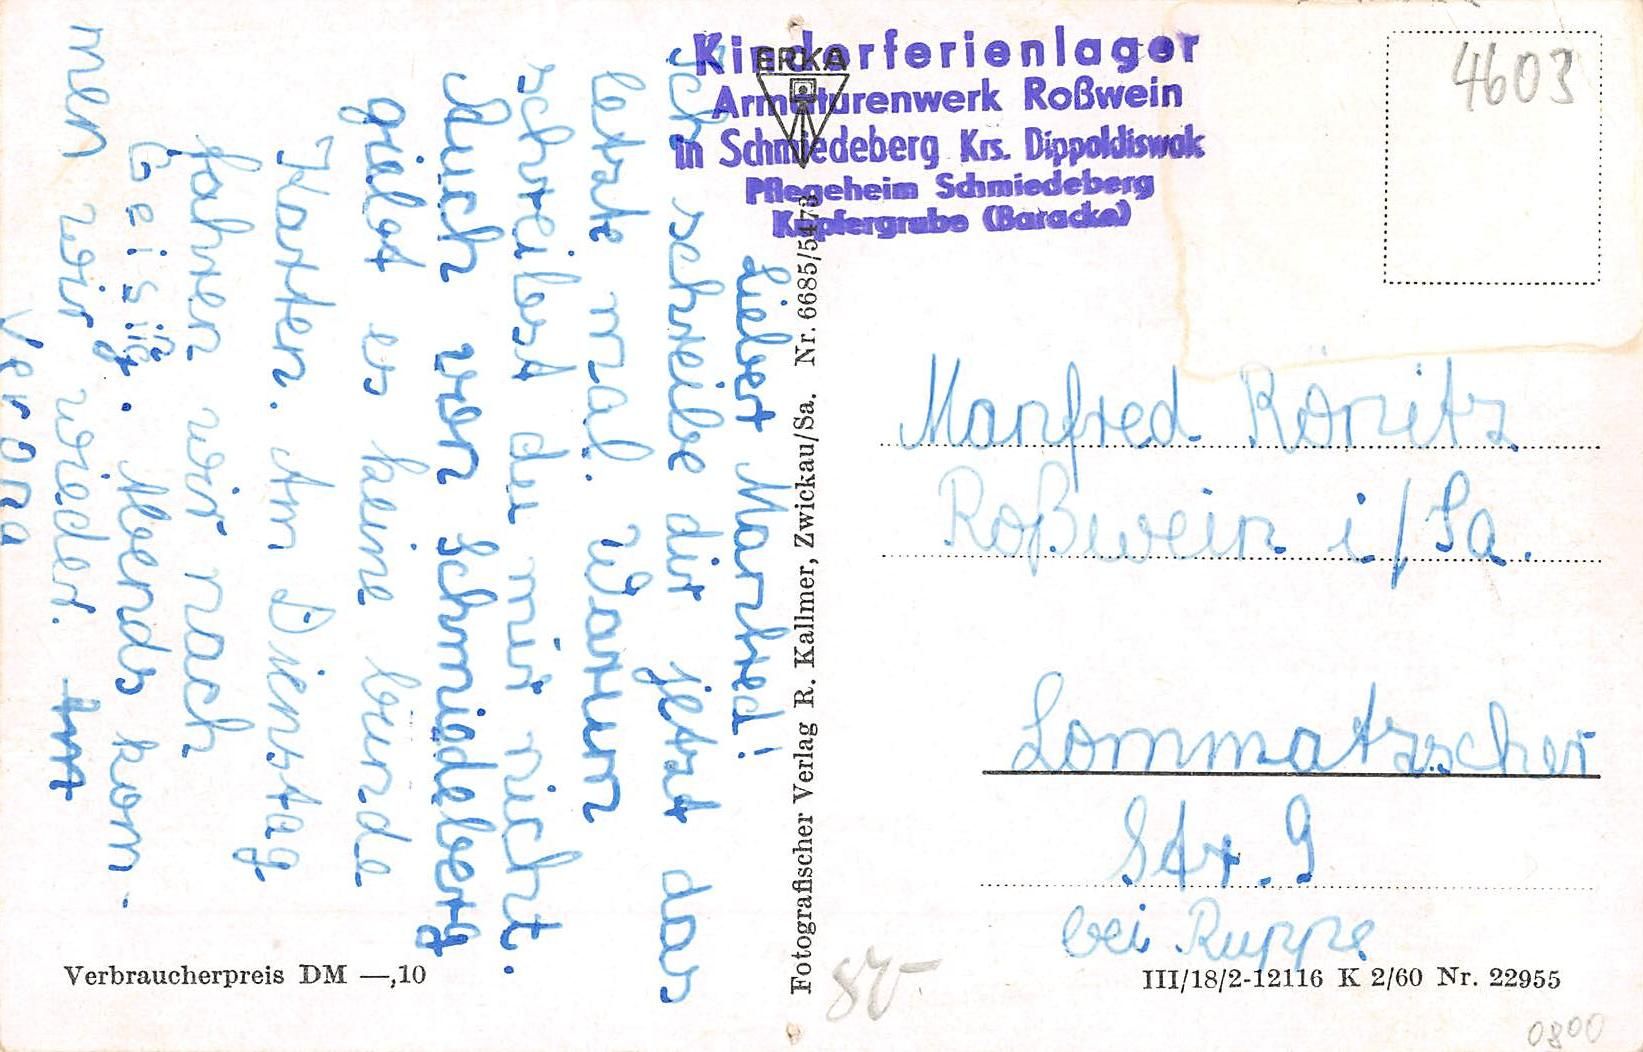 Lieber Manfred!
Ich schreibe dir jetzt das
letzte mal. Warum
schreibest du mir nicht.
Auch von Schmiedeberg
giebt es keine bunde
Karten. Am Dienstag
fahren wir nach
Geising. Abends kom-
men wir wieder. Am
Verona
Verbraucherpreis DM —,10
Kinderferienlager
Armaturenwerk Roßwein
in Schmiedeberg Krs. Dippoldiswak
Pflegeheim Schmiedeberg
Kupfergrube (Baracke)
ERKA
Fotografischer Verlag R. Kallmer, Zwickau/Sa. Nr. 6685/5473
4603
Manfred Römitz
Roßwein i/Sa.
Lommatzscher
Str. 9
bei Ruppe
III/18/2-12116 K 2/60 Nr. 22955
0800